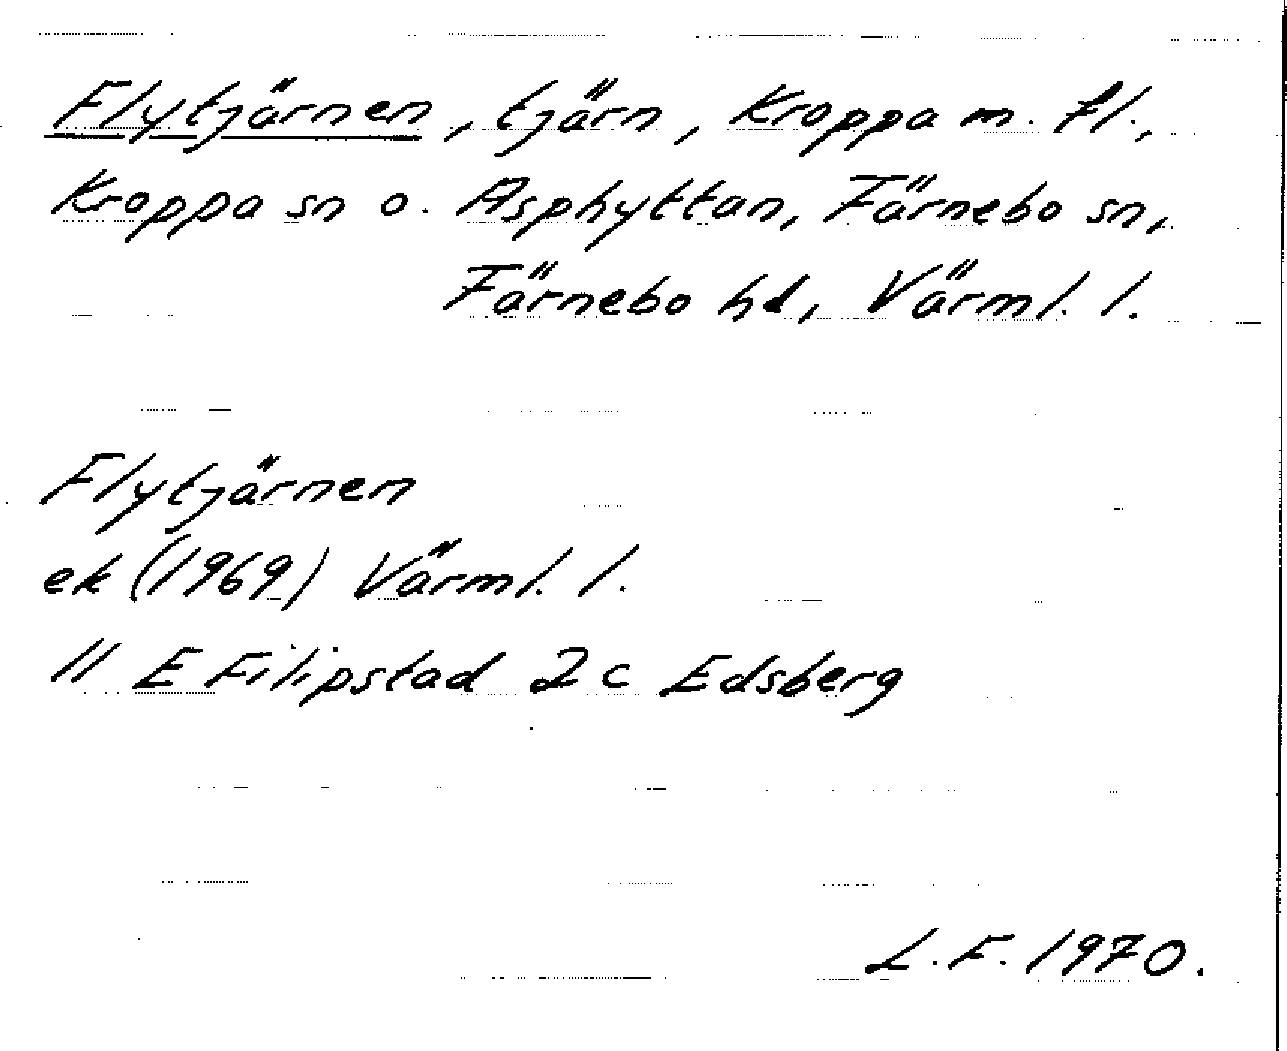 Flytjärnen, tjärn, Kroppa m. fl.,
Kroppa sn o. Asphyttan, Färnebo sn,
Färnebo hd, Värml. l.
Flytjärnen
ek (1969) Värml. l.
11 E Filipstad 2 c Edsberg
L.F. 1970.